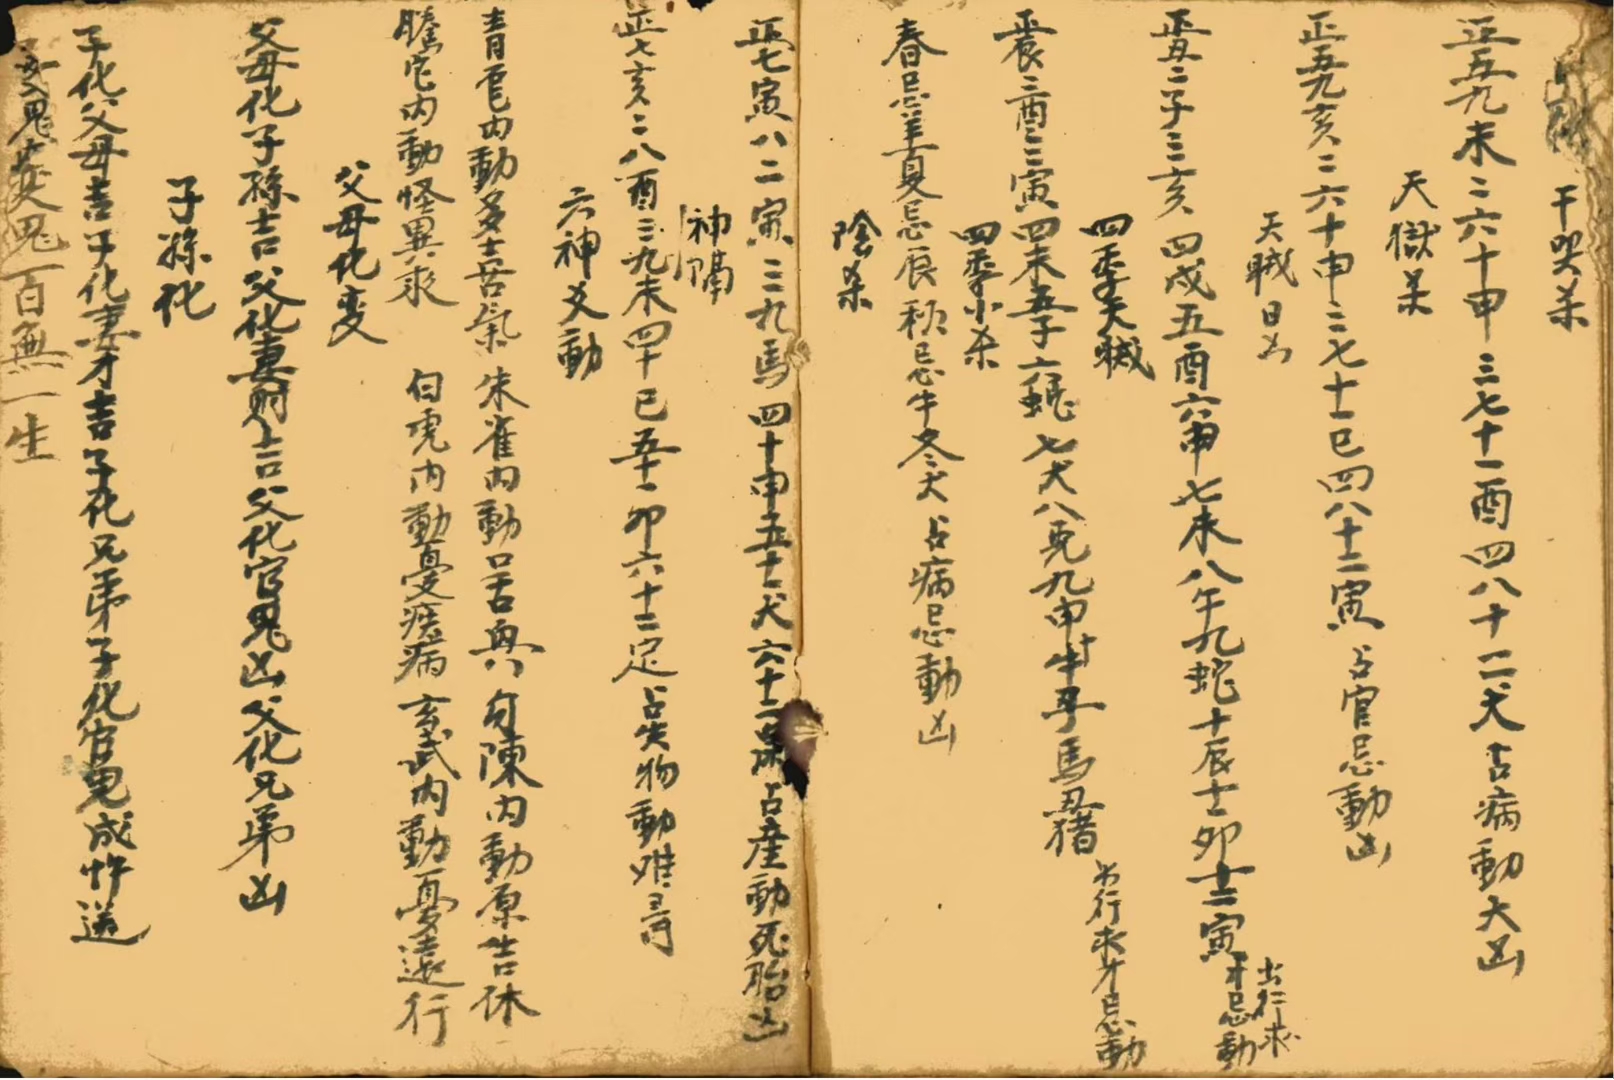 干哭杀
正五九未二六十申三七十一酉四八十二犬占病動大凶
天獄杀
正五九亥二六十申三七十一巳四八十二寅占官忌動凶
天賊日占
正丑二子三亥四戌五酉六申七未八午九蛇十辰十一卯十二寅出行求才忌動
四季天賊
正辰二酉三寅四未五子六蛇七犬八兎九申十牛十一馬十二猪出行求才忌動
四季小杀
春忌羊夏忌辰秋忌牛冬犬占病忌動凶
陰杀
正七寅八二寅三九馬四十申五十一犬六十二占産動死胎凶
神隔
正七亥二八酉三九未四十巳五十一卯六十二定占失物動难尋
六神爻動
青竜内動多喜氣朱雀内動口舌興勾陳内動原告休
螣它内動怪異求白虎内動憂疾病玄武内動憂遠行
父母化变
父母化子孫吉父化妻财吉父化官鬼凶父化兄弟凶
子孫化
子化父母吉子化妻才吉子化兄弟子化官鬼成忤送
鬼百無一生